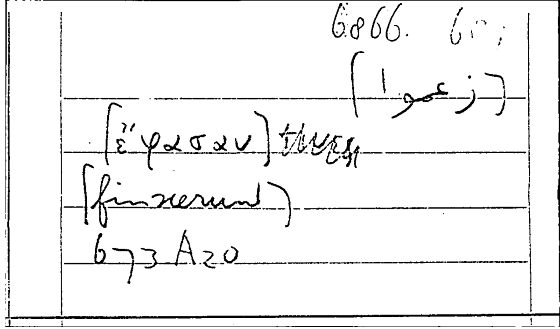 6866.
[زعموا]
[ἔφασαν] τινες
[finxerunt]
673 A20